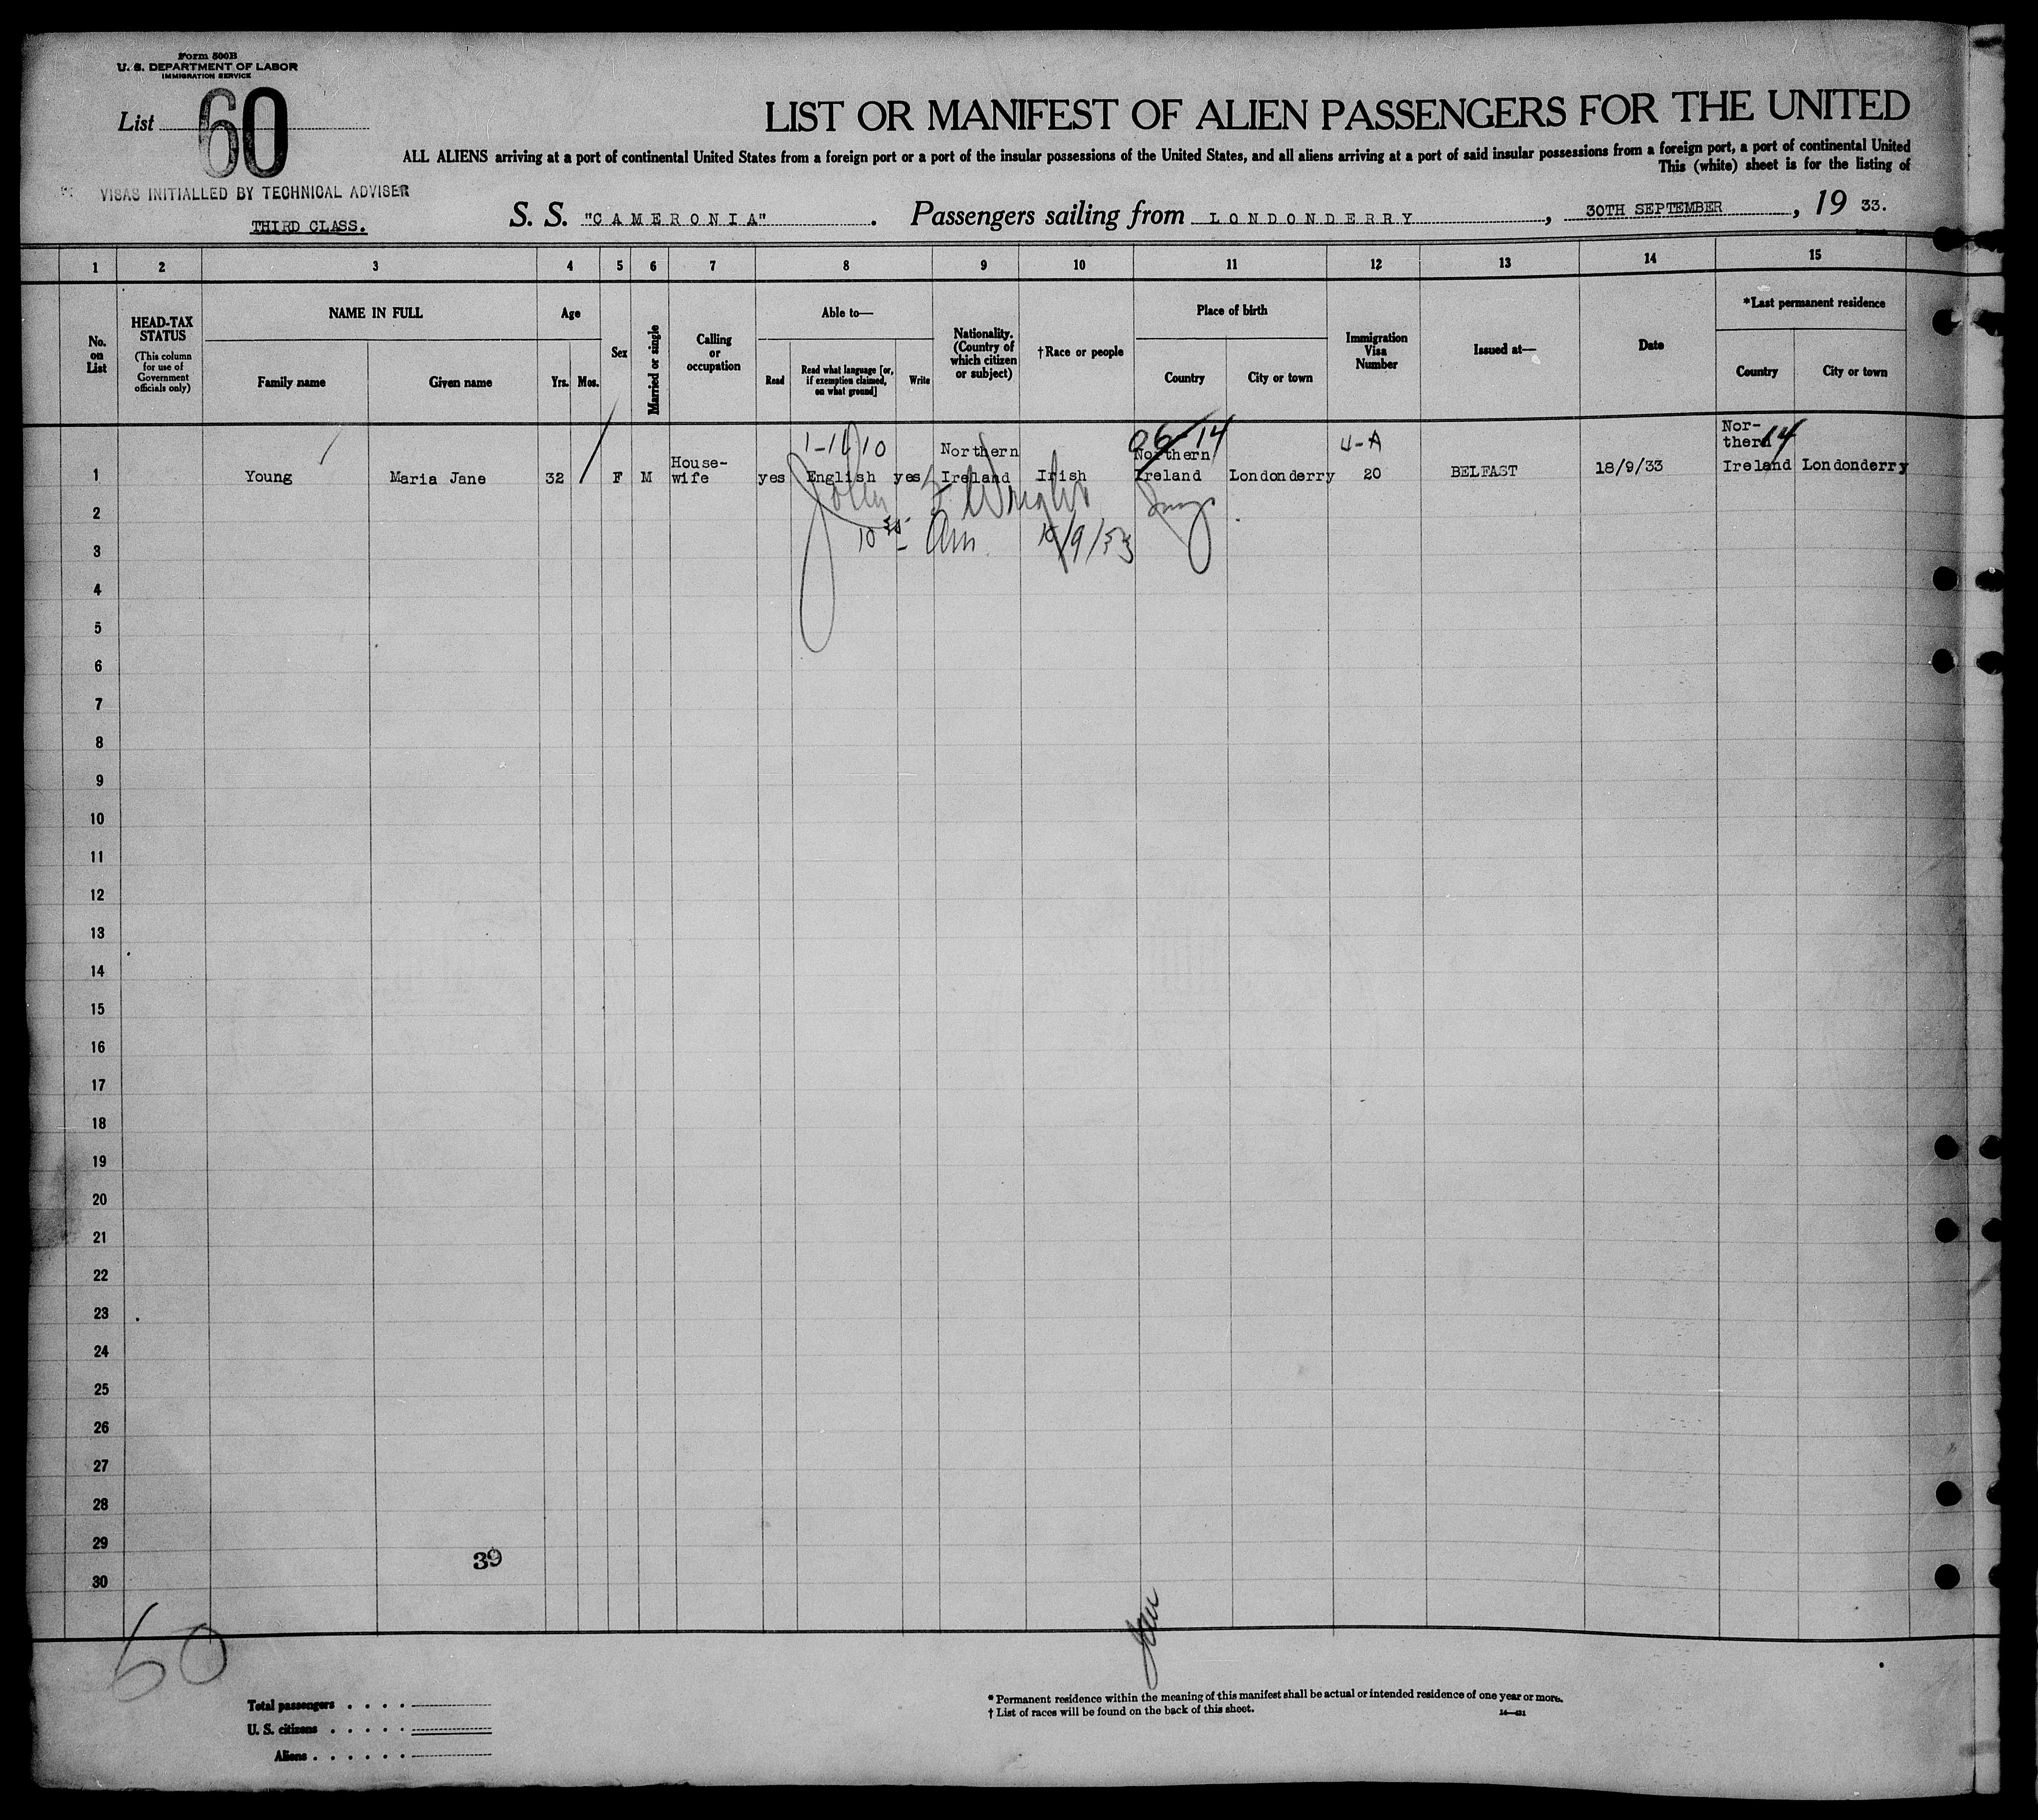 Form 500B
U. S. DEPARTMENT OF LABOR
IMMIGRATION SERVICE
List 60
VISAS INITIALLED BY TECHNICAL ADVISER
THIRD CLASS.
LIST OR MANIFEST OF ALIEN PASSENGERS FOR THE UNITED
ALL ALIENS arriving at a port of continental United States from a foreign port or a port of the insular possessions of the United States, and all aliens arriving at a port of said insular possessions from a foreign port, a port of continental United
This (white) sheet is for the listing of
S. S. "CAMERONIA" . Passengers sailing from LONDONDERRY , 30TH SEPTEMBER , 19 33.
1 2 3 4 5 6 7 8 9 10 11 12 13 14 15
No. on List
HEAD-TAX STATUS
(This column for use of Government officials only)
NAME IN FULL
Family name
Given name
Age
Yrs.
Mos.
Sex
Married or single
Calling or occupation
Able to—
Read
Read what language [or, if exemption claimed, on what ground]
Write
Nationality. (Country of which citizen or subject)
†Race or people
Place of birth
Country
City or town
Immigration Visa Number
Issued at—
Date
*Last permanent residence
Country
City or town
06-14
4-A
14
1 Young Maria Jane 32 F M House-wife yes English yes Northern Ireland Irish Northern Ireland Londonderry 20 BELFAST 18/9/33 Nor-thern Ireland Londonderry
John F Wright
2
3
4
5
6
7
8
9
10
11
12
13
14
15
16
17
18
19
20
21
22
23
24
25
26
27
28
29
39
30
60
Total passengers . . . .
U. S. citizens . . . . .
Aliens . . . . . .
* Permanent residence within the meaning of this manifest shall be actual or intended residence of one year or more.
† List of races will be found on the back of this sheet.